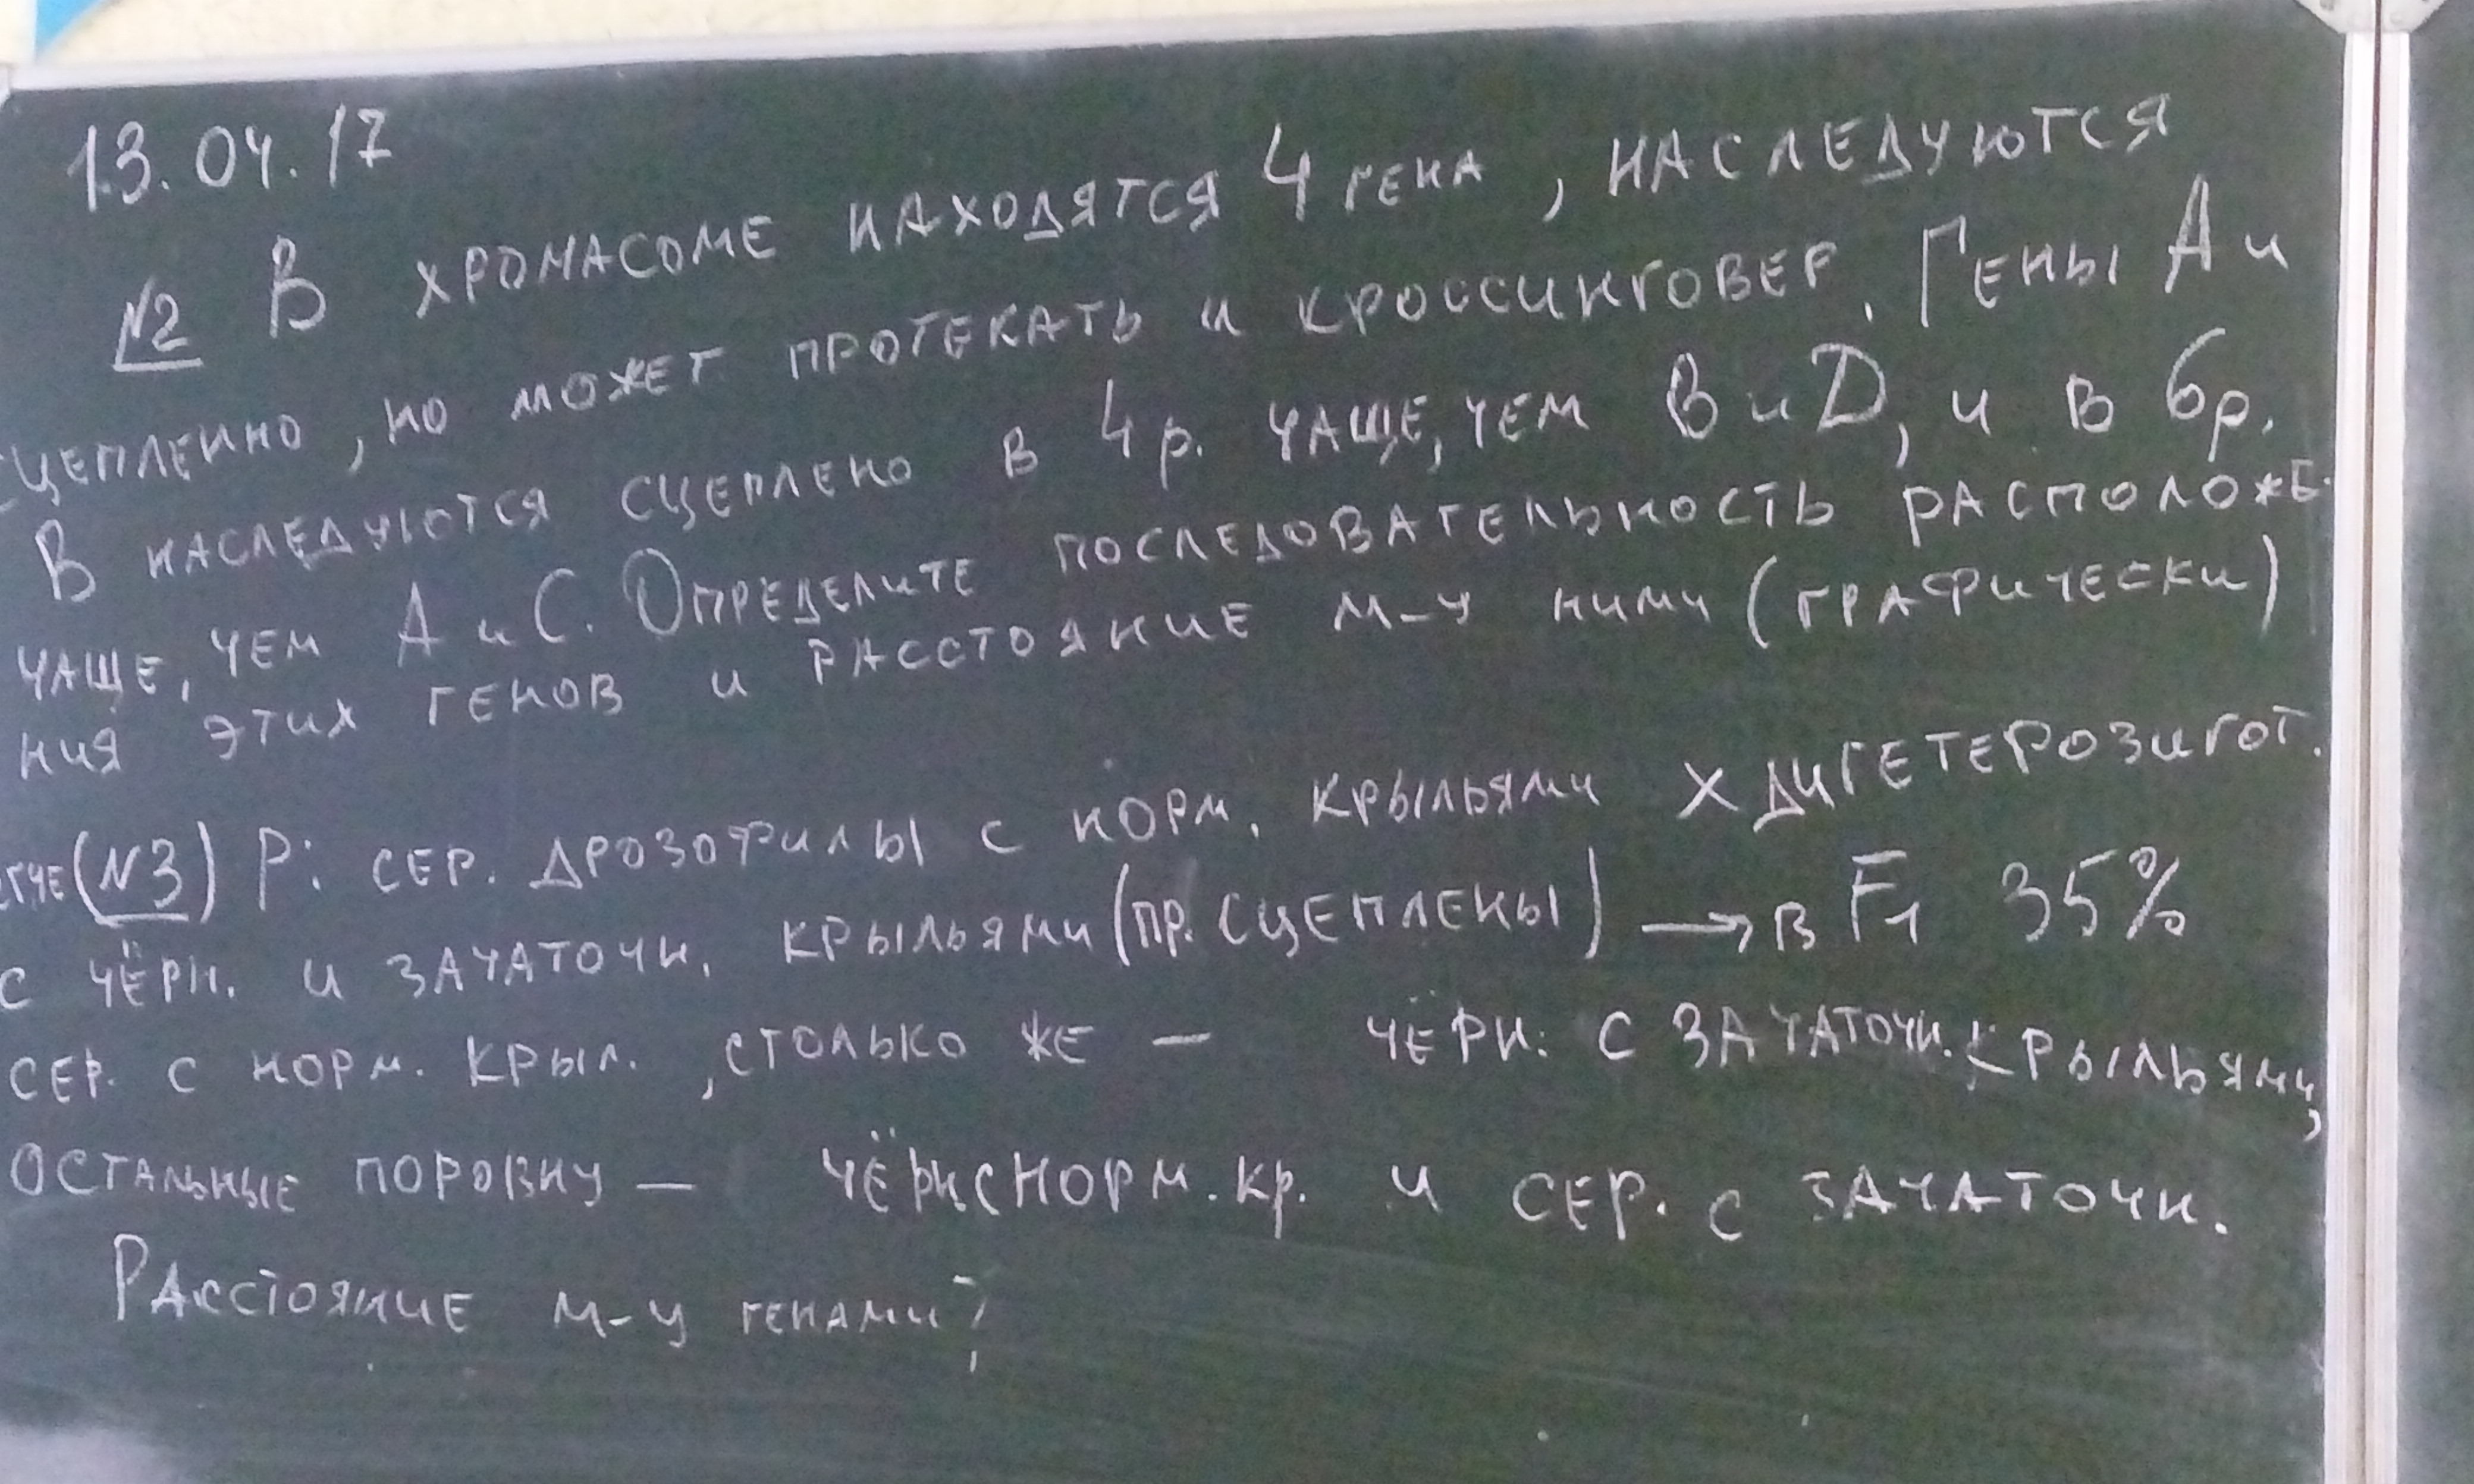 13.04.17
№2 В ХРОМАСОМЕ НАХОДЯТСЯ 4 ГЕНА, НАСЛЕДУЮТСЯ
СЦЕПЛЕННО, НО МОЖЕТ ПРОТЕКАТЬ И КРОССИНГОВЕР. ГЕНЫ А и
В НАСЛЕДУЮТСЯ СЦЕПЛЕНО В 4 р. ЧАЩЕ, ЧЕМ В и D, и В 6р.
ЧАЩЕ, ЧЕМ А и С. ОПРЕДЕЛИТЕ ПОСЛЕДОВАТЕЛЬНОСТЬ РАСПОЛОЖЕ-
НИЯ ЭТИХ ГЕНОВ И РАССТОЯНИЕ М-У НИМИ (ГРАФИЧЕСКИ)
(№3) Р: СЕР. ДРОЗОФИЛЫ С НОРМ. КРЫЛЬЯМИ X ДИГЕТЕРОЗИГОТ.
С ЧЁРН. И ЗАЧАТОЧН. КРЫЛЬЯМИ (ПР. СЦЕПЛЕНЫ) → В F1 35%
СЕР. С НОРМ. КРЫЛ., СТОЛЬКО ЖЕ — ЧЁРН. С ЗАЧАТОЧН. КРЫЛЬЯМИ,
ОСТАЛЬНЫЕ ПОРОВНУ — ЧЁРН С НОРМ. КР. И СЕР. С ЗАЧАТОЧН.
РАССТОЯНИЕ М-У ГЕНАМИ?